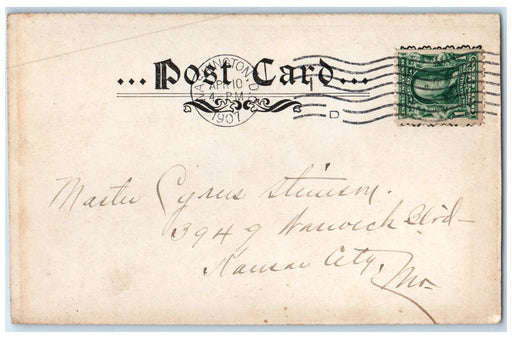 ...Post Card...
WASHINGTON, D.
APR 10
4-PM
1907
D
Master Cyrus Stimson.
3949 Warwick Blvd
Kansas City, Mo.